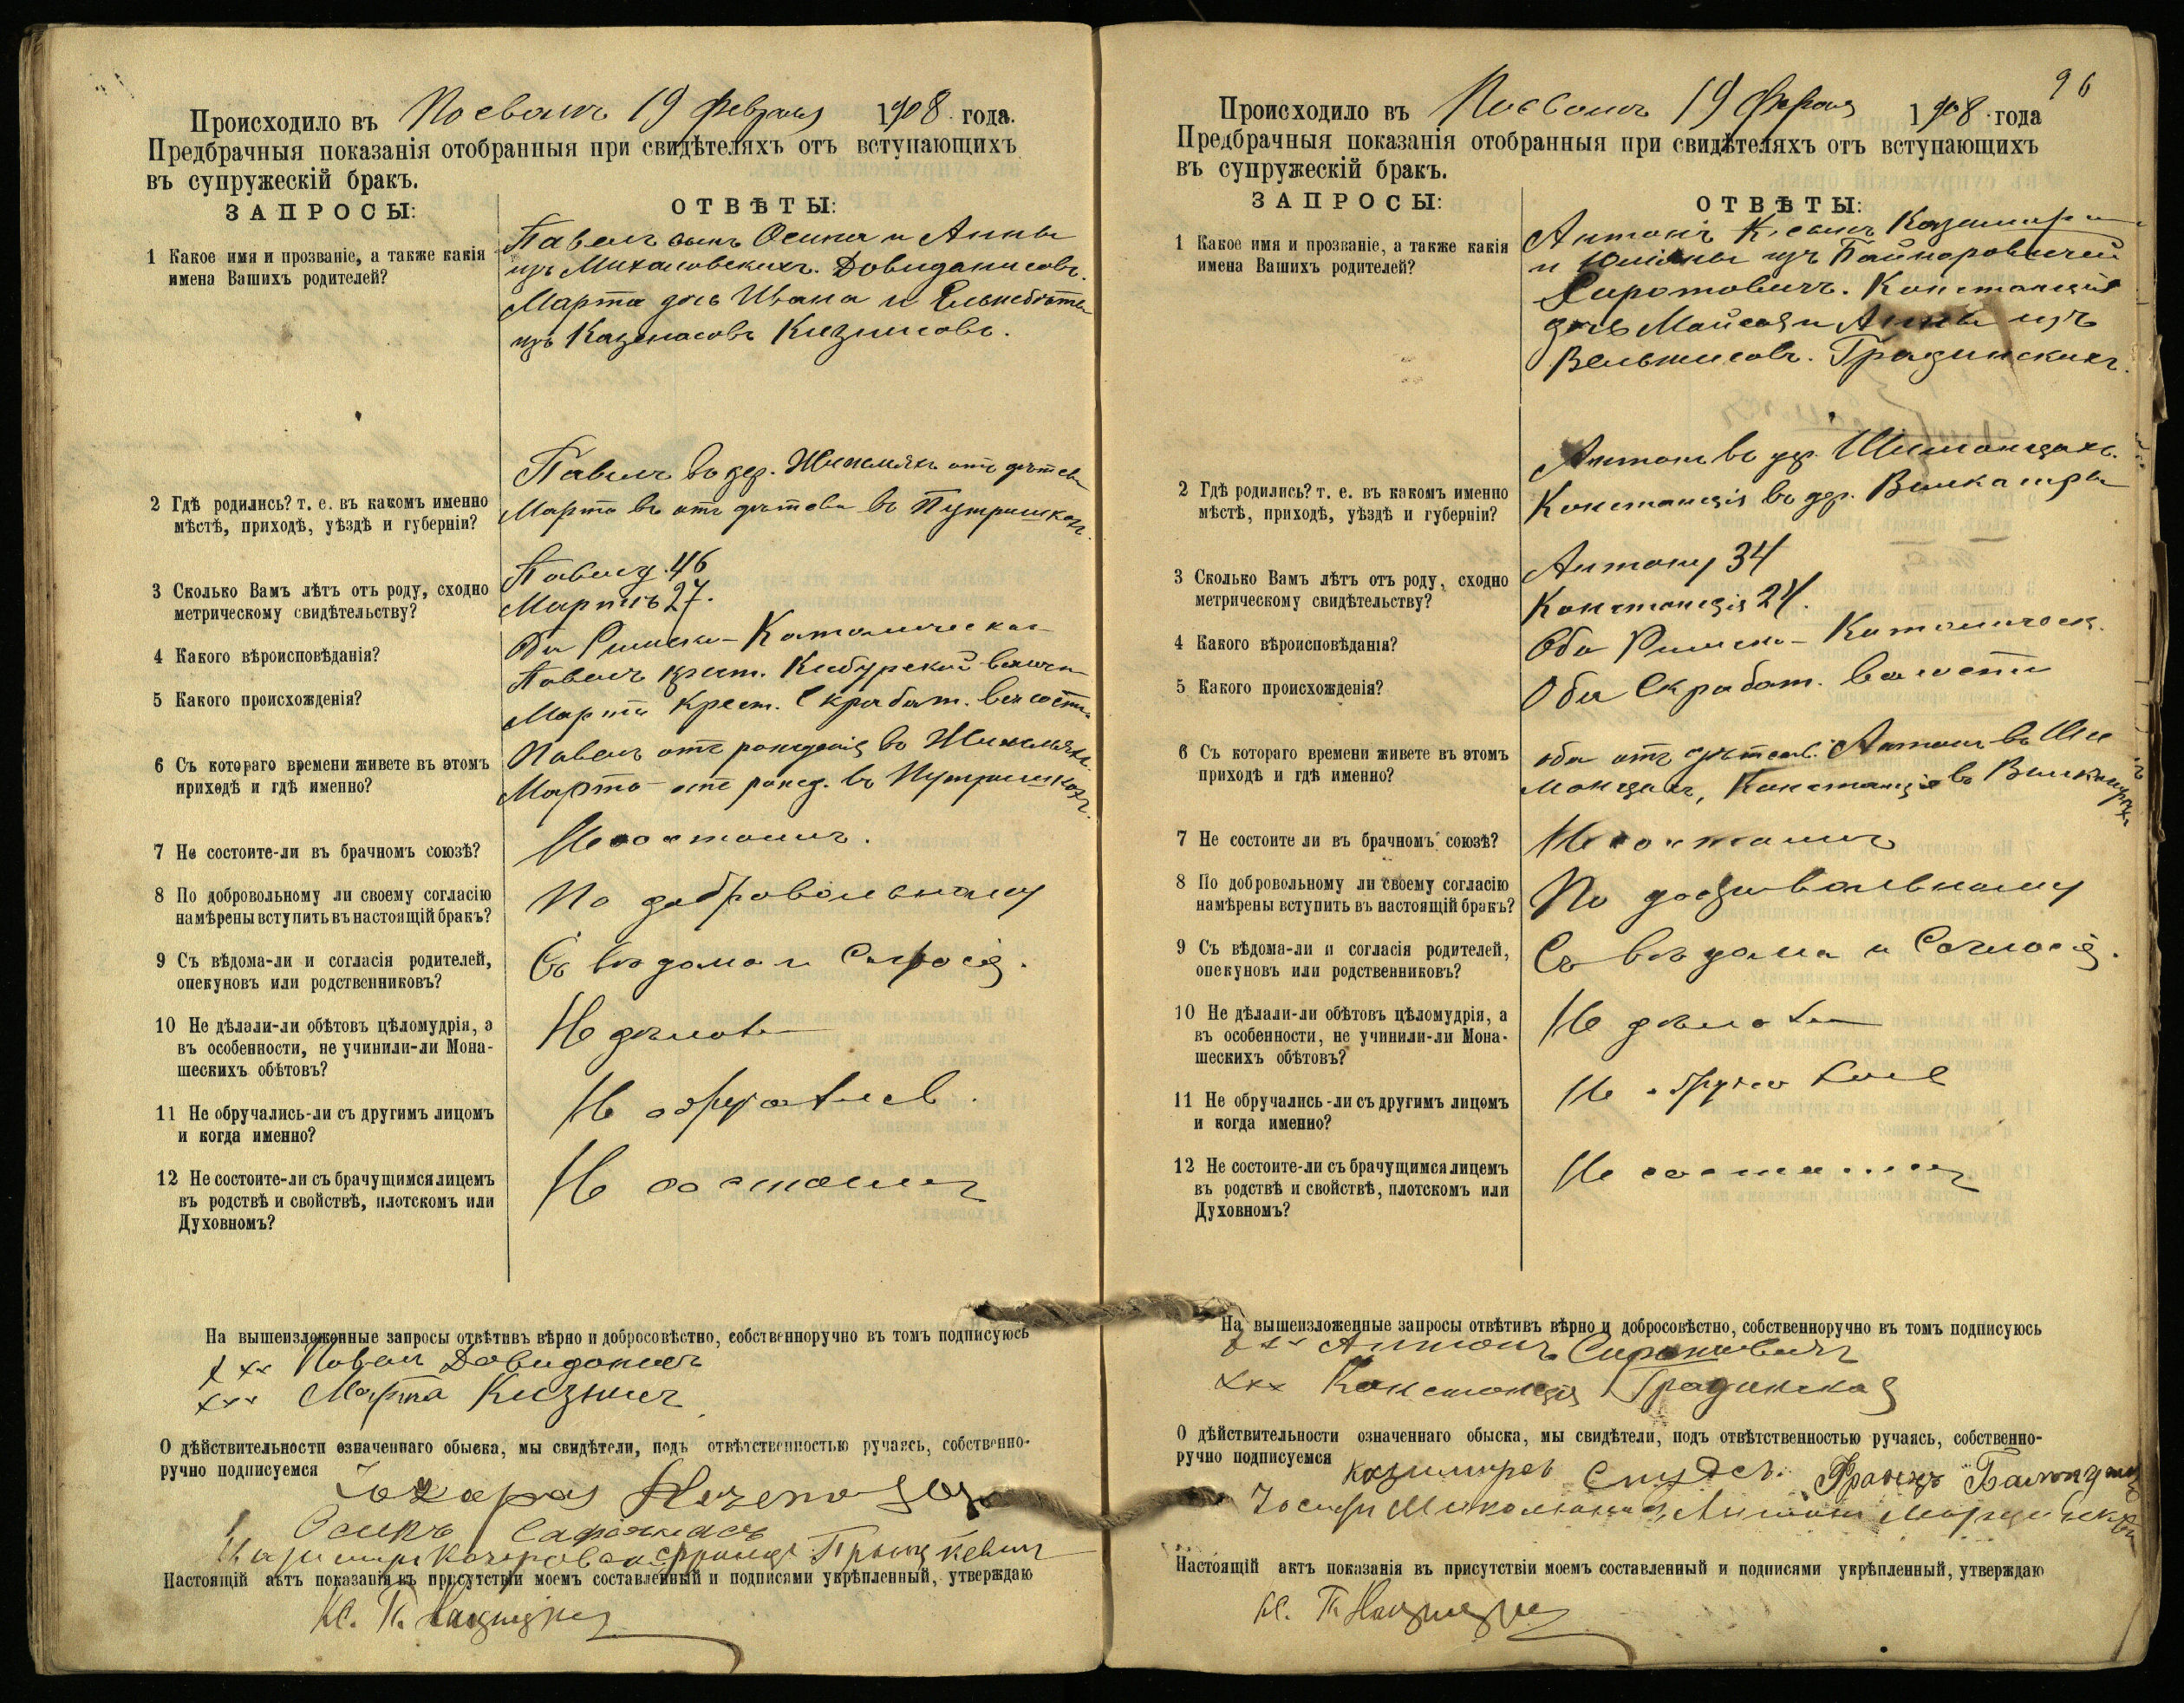 Происходило въ Посволь 19 Февраля 1908 года.
Предбрачныя показанія отобранныя при свидѣтеляхъ отъ вступающихъ
въ супружескій бракъ.
ЗАПРОСЫ:
ОТВѢТЫ:
1 Какое имя и прозваніе, а также какія
имена Вашихъ родителей?
Павелъ сынъ Осипа и Анны
изъ Михаловскихъ Довиданисовъ.
Марта дочь Ивана и Ельжбѣты
изъ Казенасовъ Кизнисовъ.
2 Гдѣ родились? т. е. въ какомъ именно
мѣстѣ, приходѣ, уѣздѣ и губерніи?
Павелъ въ дер. отъ дѣтства
Марта въ отъ дѣтства въ Путришкахъ.
3 Сколько Вамъ лѣтъ отъ роду, сходно
метрическому свидѣтельству?
Павелу 46
Мартѣ 27.
4 Какого вѣроисповѣданія?
Оба Римско-Католическаго
5 Какого происхожденія?
Павелъ крест. волости
Марта крест. Скработ. волости
6 Съ котораго времени живете въ этомъ
приходѣ и гдѣ именно?
Павелъ отъ рожденія въ
Марта отъ рожд. въ Путришкахъ.
7 Не состоите-ли въ брачномъ союзѣ?
Не состоимъ.
8 По добровольному ли своему согласію
намѣрены вступить въ настоящій бракъ?
По добровольному
9 Съ вѣдома-ли и согласія родителей,
опекуновъ или родственниковъ?
Съ вѣдома и согласія.
10 Не дѣлали-ли обѣтовъ цѣломудрія, а
въ особенности, не учинили-ли Мона-
шескихъ обѣтовъ?
Не дѣлали
11 Не обручались-ли съ другимъ лицомъ
и когда именно?
Не обручались.
12 Не состоите-ли съ брачущимся лицемъ
въ родствѣ и свойствѣ, плотскомъ или
Духовномъ?
Не состоимъ
На вышеизложенные запросы отвѣтивъ вѣрно и добросовѣстно, собственноручно въ томъ подписуюсь
xxx Павелъ Довиданисъ
xxx Марта Кизнисъ
О дѣйствительности означеннаго обыска, мы свидѣтели, подъ отвѣтственностью ручаясь, собственно-
ручно подписуемся
Осипъ
Казимиръ
Настоящій актъ показанія въ присутствіи моемъ составленный и подписями укрѣпленный, утверждаю
Кс. П.
96
Происходило въ Посволь 19 Февраля 1908 года
Предбрачныя показанія отобранныя при свидѣтеляхъ отъ вступающихъ
въ супружескій бракъ.
ЗАПРОСЫ:
ОТВѢТЫ:
1 Какое имя и прозваніе, а также какія
имена Вашихъ родителей?
Антонъ К. сынъ Казимира
и изъ Байноровичей
Сиротовичъ. Констанція
дочь Мойсея и Анны изъ
Вельжисовъ. Градинскихъ.
2 Гдѣ родились? т. е. въ какомъ именно
мѣстѣ, приходѣ, уѣздѣ и губерніи?
Антонъ въ дер. Шимонцахъ.
Констанція въ дер.
3 Сколько Вамъ лѣтъ отъ роду, сходно
метрическому свидѣтельству?
Антону 34
Констанція 24.
4 Какого вѣроисповѣданія?
Оба Римско-Католическ.
5 Какого происхожденія?
Оба Скработ. волости
6 Съ котораго времени живете въ этомъ
приходѣ и гдѣ именно?
оба отъ дѣтства Антонъ въ Ши
монцахъ, Констанція въ
7 Не состоите ли въ брачномъ союзѣ?
Не состоимъ
8 По добровольному ли своему согласію
намѣрены вступить въ настоящій бракъ?
По добровольному
9 Съ вѣдома-ли и согласія родителей,
опекуновъ или родственниковъ?
Съ вѣдома и Согласія.
10 Не дѣлали-ли обѣтовъ цѣломудрія, а
въ особенности, не учинили-ли Мона-
шескихъ обѣтовъ?
Не дѣлали
11 Не обручались-ли съ другимъ лицомъ
и когда именно?
Не обручались
12 Не состоите-ли съ брачущимся лицемъ
въ родствѣ и свойствѣ, плотскомъ или
Духовномъ?
Не состоимъ
На вышеизложенные запросы отвѣтивъ вѣрно и добросовѣстно, собственноручно въ томъ подписуюсь
xxx Антонъ Сиротовичъ
xxx Констанція Градинская
О дѣйствительности означеннаго обыска, мы свидѣтели, подъ отвѣтственностью ручаясь, собственно-
ручно подписуемся
Казимиръ Францъ
Антонъ
Настоящій актъ показанія въ присутствіи моемъ составленный и подписями укрѣпленный, утверждаю
Кс. П.